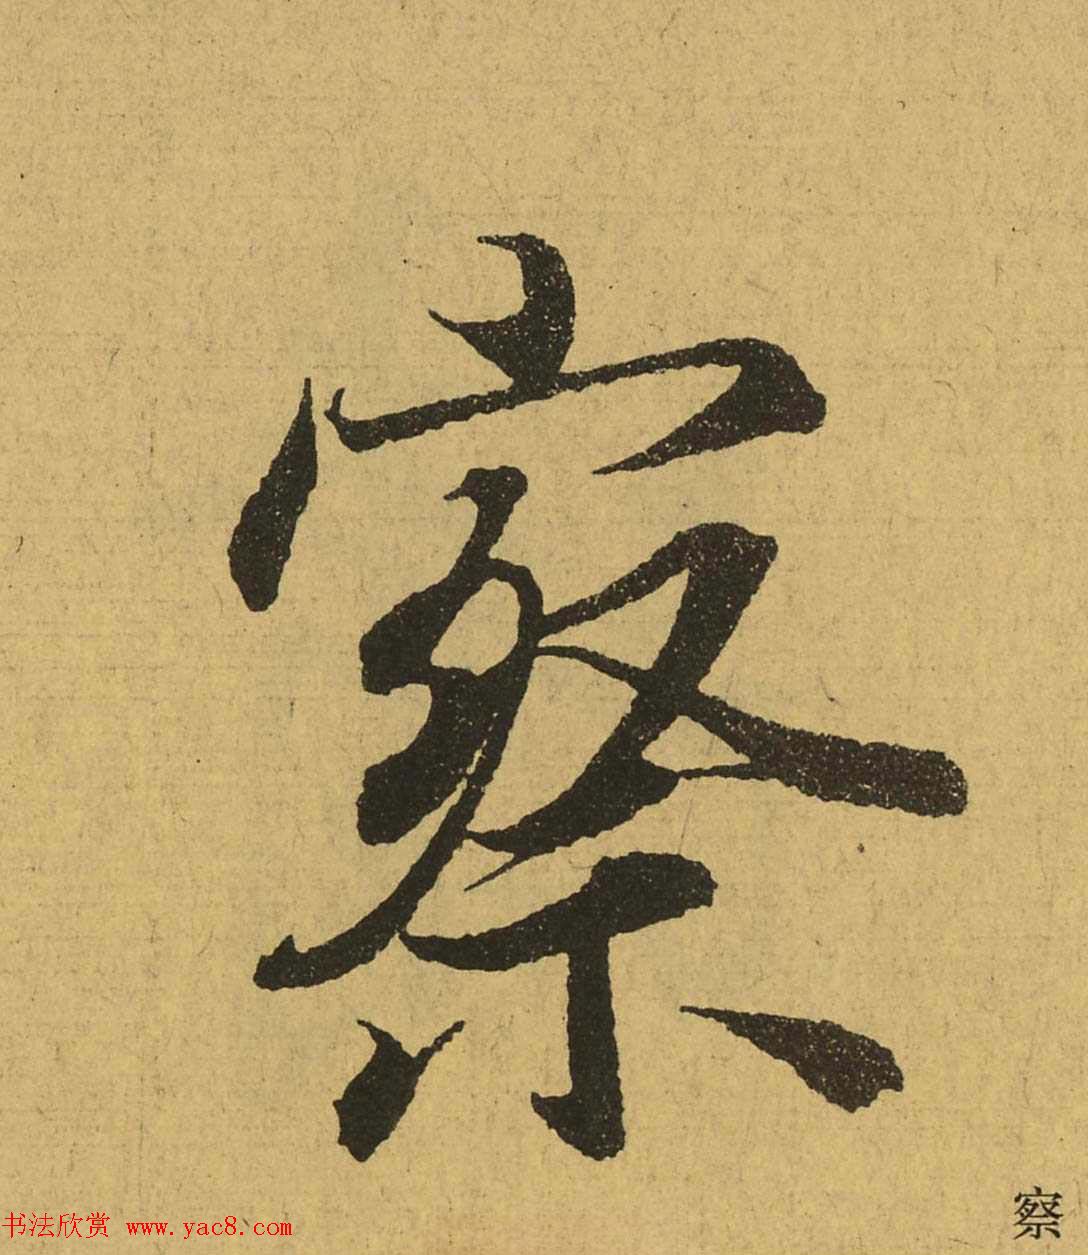 察
察
书法欣赏 www.yac8.com